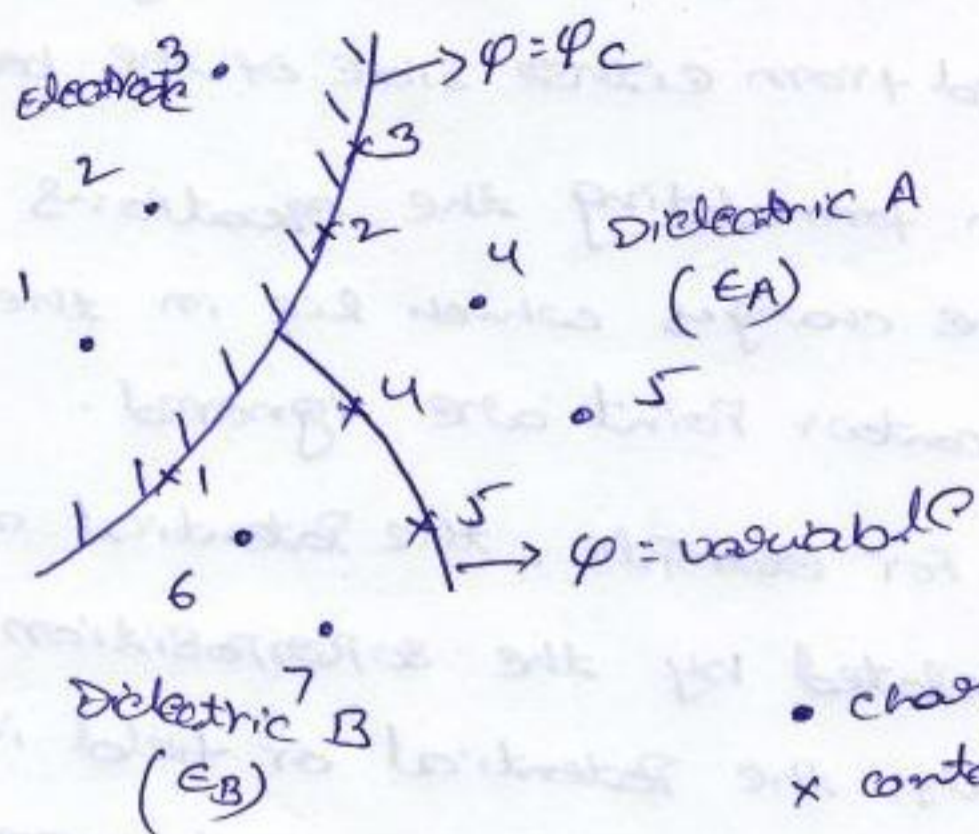 3
Electrode
→ φ = φc
3
2
2
Dielectric A
(ϵA)
4
1
5
4
1
5
→ φ = variable
6
7
Dielectric B
(ϵB)
• char
× conto